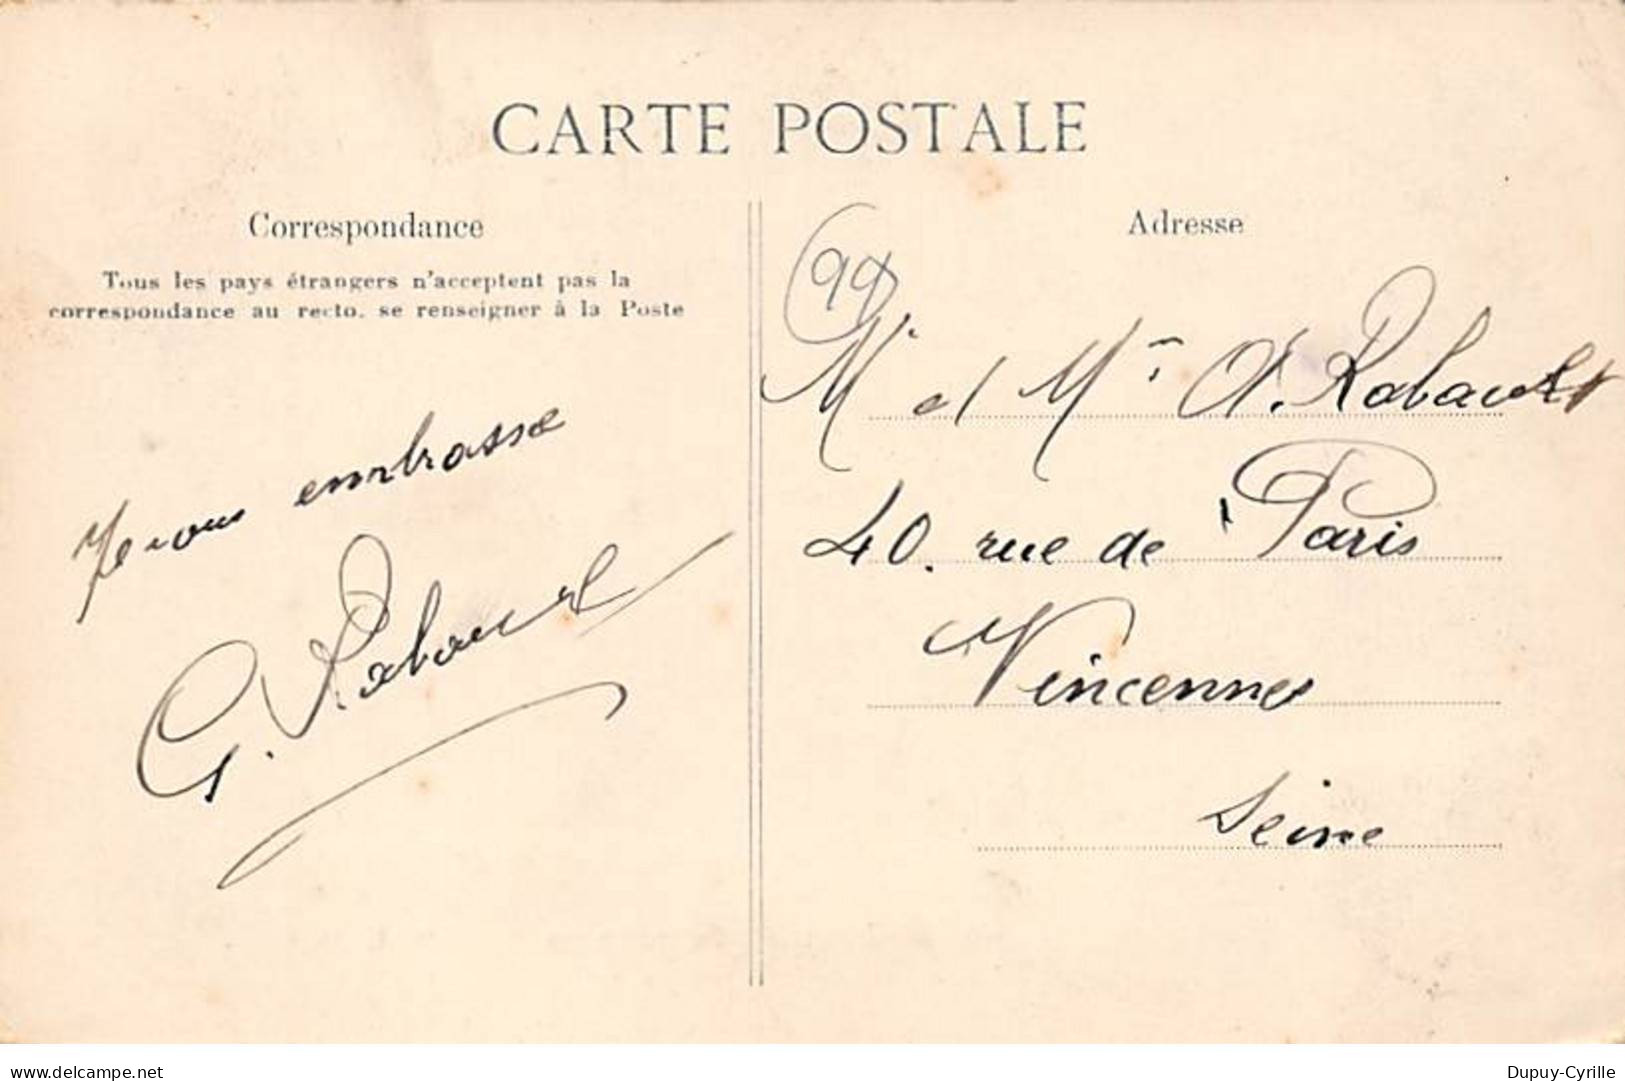 CARTE POSTALE
Correspondance
Tous les pays étrangers n'acceptent pas la
correspondance au recto, se renseigner à la Poste
Je vous embrasse
G. Rabault
Adresse
Mr et Mme A. Rabault
40. rue de Paris
Vincennes
Seine
delcampe.net
Dupuy-Cyrille